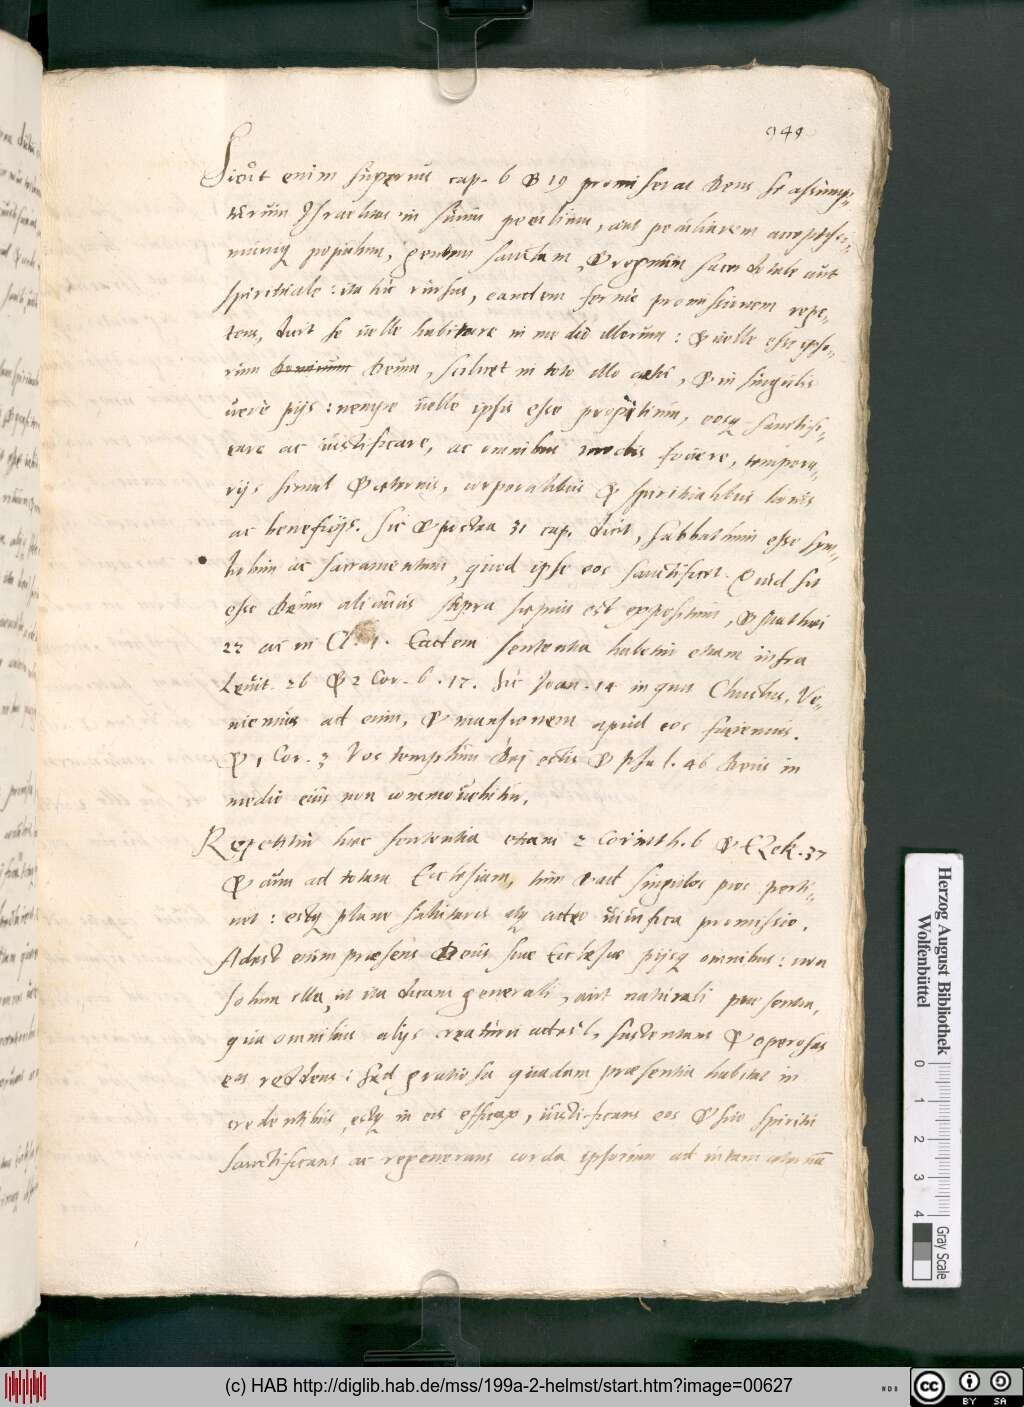 941
Sicut enim superius cap. 6 & 19 promiserat Deus se assump-
turum Israelem in suum peculium, aut peculiarem amplissi-
mumq populum, gentem sanctam, & regnum sacerdotale aut
spirituale: ita hic rursus, eandem fermè promissionem repe-
tens, dicit se uelle habitare in medio illorum: & uelle esse ipso-
rum Deum, scilicet in toto illo coetu, & in singulis
uerè pijs: nempe uelle ipsis esse propitium, eosq sanctifi-
care ac iustificare, ac omnibus modis fouere, tempora-
rijs simul & aeternis, corporalibus & spiritualibus donis
ac beneficijs. Sic & postea 31 cap. dicit, sabbathum esse sym-
bolum ac sacramentum, quod ipse eos sanctificet. Quid sit
esse Deum alicuius supra saepius est expositum, & Matthaei
22 ac in Cl. 1. Eadem sententia habetur etiam infra
Leuit. 26 & 2 Cor. 6. 17. Sic Joan. 14 inquit Christus, Ve-
niemus ad eum, & mansionem apud eos faciemus.
& 1 Cor. 3 Vos templum Dei estis & Psal. 46 Deus in
medio eius non commouebitur.
Repetitur haec sententia etiam 2 Corinth. 6 & Ezek. 37
& cum ad totam Ecclesiam, tum & ad singulos pios perti-
net: estq plane salutaris atq adeo uiuifica promissio.
Adest enim praesens Deus suae Ecclesiae pijsq omnibus: non
solum illa, ut ita dicam generali, aut naturali praesentia,
qua omnibus alijs creaturis adest, sustentans & operosas
eas reddens: sed gratiosa quadam praesentia habitat in
credentibus, estq in eis efficax, iustificans eos & suo spiritu
sanctificans ac regenerans corda ipsorum ad uitam aeternam
Herzog August Bibliothek
Wolfenbüttel
0 1 2 3 4
Gray Scale
(c) HAB http://diglib.hab.de/mss/199a-2-helmst/start.htm?image=00627
cc BY SA